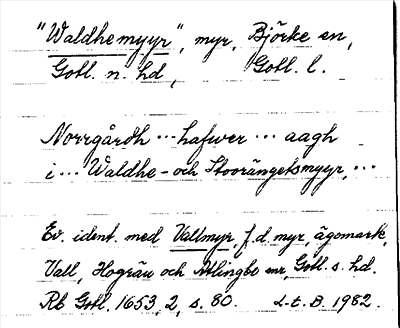 "Waldhemyyr", myr, Björke sn,
Gotl. n. hd, Gotl. l.
Norrgårdh ... hafwer ... aagh
i ... Waldhe- och Stoorängetsmyyr, ...
Ev. ident. med Vallmyr, f.d. myr, ägomark,
Vall, Hogrän och Atlingbo snr, Gotl. s. hd.
Rb Gotl. 1653, 2, s. 80. L-t. B. 1982.